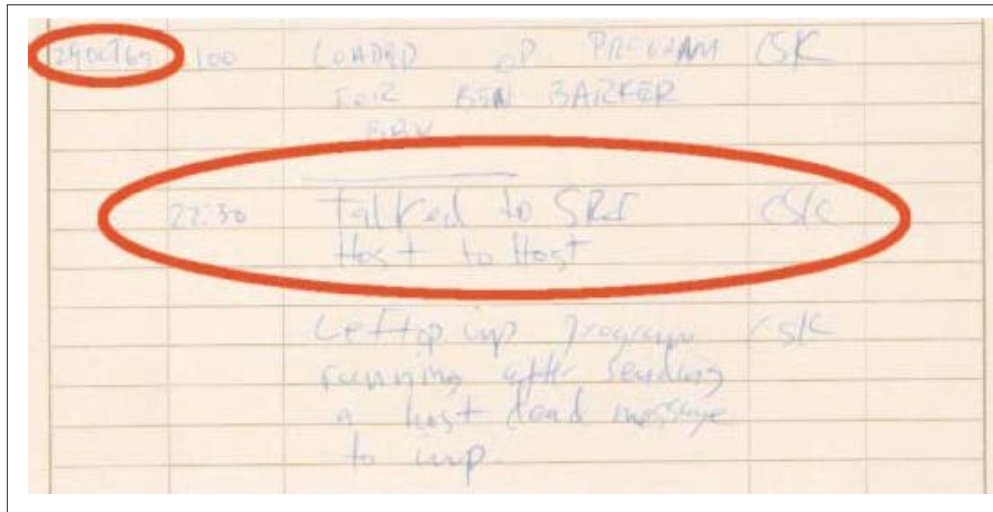 29Oct69 2100 LOADED OP. PROGRAM CSK
FOR BEN BARKER
BBN
22:30 Talked to SRI CSK
Host to Host
Left op imp program CSK
running after sending
a host dead message
to imp.